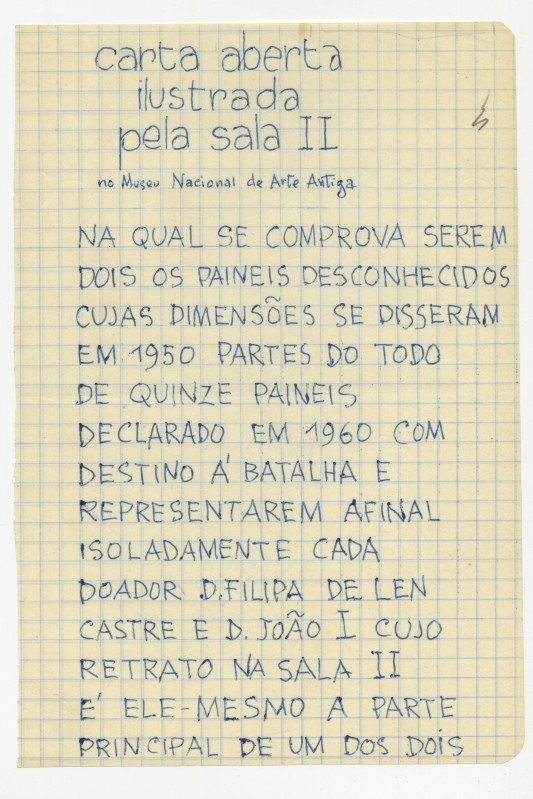 carta aberta
ilustrada
pela sala II
no Museu Nacional de Arte Antiga
NA QUAL SE COMPROVA SEREM
DOIS OS PAINEIS DESCONHECIDOS
CUJAS DIMENSÕES SE DISSERAM
EM 1950 PARTES DO TODO
DE QUINZE PAINEIS
DECLARADO EM 1960 COM
DESTINO Á BATALHA E
REPRESENTAREM AFINAL
ISOLADAMENTE CADA
DOADOR D. FILIPA DE LEN
CASTRE E D. JOÃO I CUJO
RETRATO NA SALA II
E' ELE-MESMO A PARTE
PRINCIPAL DE UM DOS DOIS